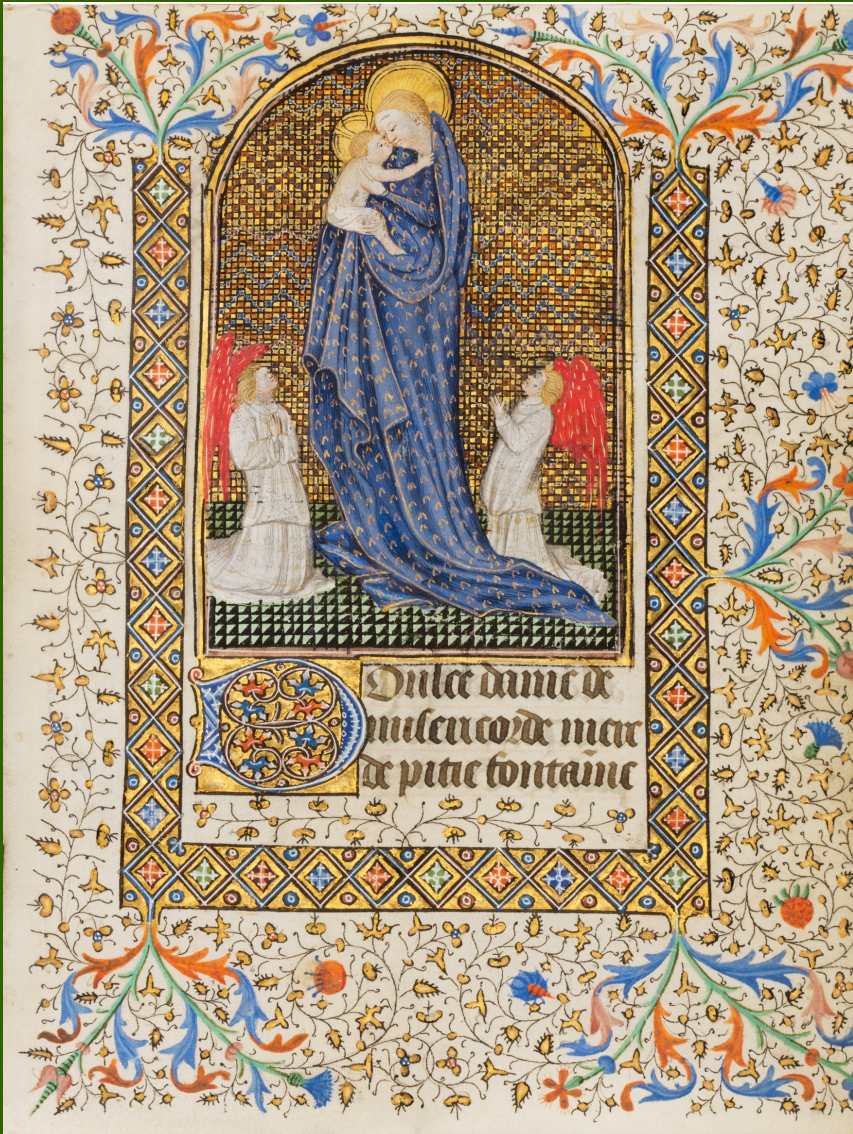 Doulce dame de
misericorde mere
de pitie fontaine